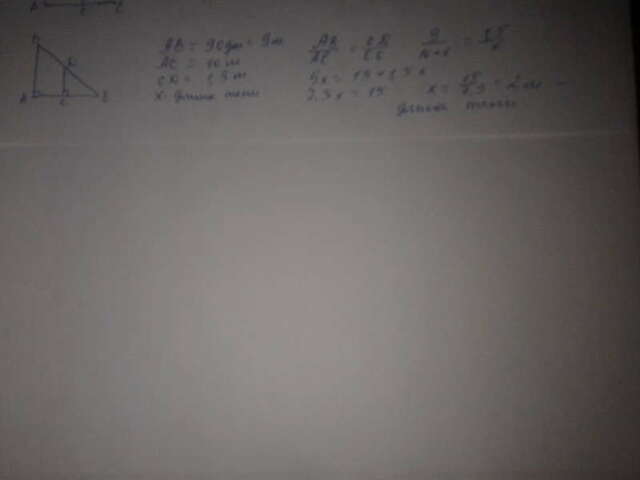 AB = 90дм = 9м
AC = 10 м
CD = 1,5 м
x - длина тени
9 / 10+x = 1,5 / x
9x = 15 + 1,5x
7,5x = 15
x = 15 / 7,5 = 2 м -
длина тени